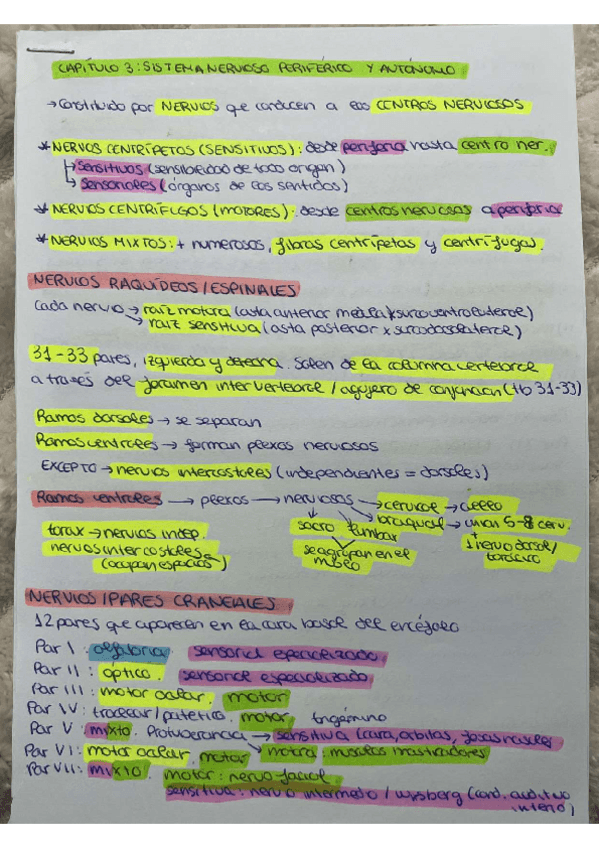 CAPÍTULO 3: SISTEMA NERVIOSO PERIFÉRICO Y AUTÓNOMO
→ Constituido por NERVIOS que conducen a los CENTROS NERVIOSOS
* NERVIOS CENTRÍPETOS (SENSITIVOS): desde periferia hasta centro ner.
↳ Sensitivos (sensibilidad de todo origen)
↳ Sensoriales (órganos de los sentidos)
* NERVIOS CENTRÍFUGOS (MOTORES): desde centros nerviosos a periferia
* NERVIOS MIXTOS: + numerosos, fibras centrípetas y centrífugas.
NERVIOS RAQUÍDEOS/ESPINALES
Cada nervio → raíz motora (asta anterior médula x surco ventrolateral)
→ raíz sensitiva (asta posterior x surco dorsolateral)
31-33 pares, izquierda y derecha. Salen de la columna vertebral
a través del foramen intervertebral / agujero de conjunción (Hb 31-33)
Ramos dorsales → se separan
Ramos ventrales → forman plexos nerviosos
EXCEPTO → nervios intercostales (independientes = dorsales)
Ramos ventrales → plexos → nerviosos → cervical → cuello
tórax → nervios indep. sacro lumbar → braquial → unión 5-8 cerv.
nervios intercostales se agrupan en el + 1 nervio dorsal/
(ocupan espacios) torácico
NERVIOS/PARES CRANEALES
12 pares que aparecen en la cara basal del encéfalo
Par I: olfatorio sensorial especializado
Par II: óptico. sensorial especializado
Par III: motor ocular. motor
Par IV: troclear/patético. motor Trigémino
Par V: mixto. Protuberancia → sensitiva (cara, órbitas, fosas nasales
Par VI: motor ocular. motor → motora: músculos masticadores
Par VII: mixto. motor: nervio facial.
sensitiva: nervio intermedio / wrisberg (cond. auditivo
interno)